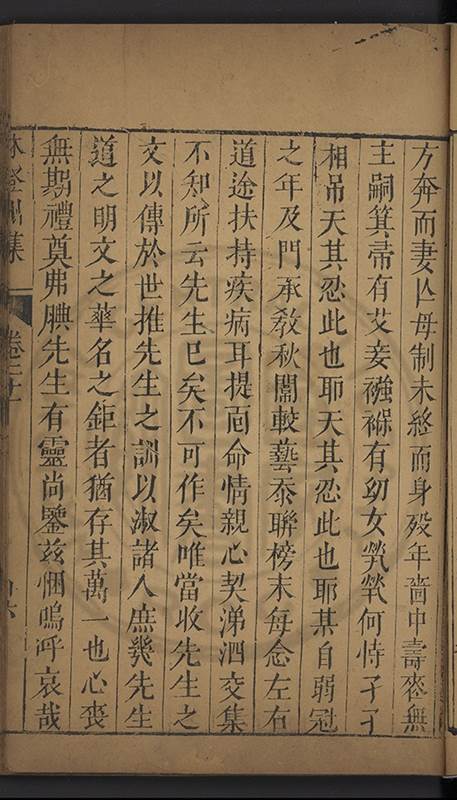 方奔而妻亡母制未終而身歿年嗇中壽喪無
主嗣箕帚有艾妾襁褓有幼女煢煢何恃孑孑
相弔天其忍此也耶天其忍此也耶某自弱冠
之年及門承教秋闈較藝忝聯榜末每念左右
道途扶持疾病耳提面命情親心契涕泗交集
不知所云先生已矣不可作矣唯當收先生之
文以傳於世推先生之訓以淑諸人庶幾先生
道之明文之華名之鉅者猶存其萬一也心喪
無期禮奠弗腆先生有靈尚鑒茲悃嗚呼哀哉
林登州集
卷二十
十六